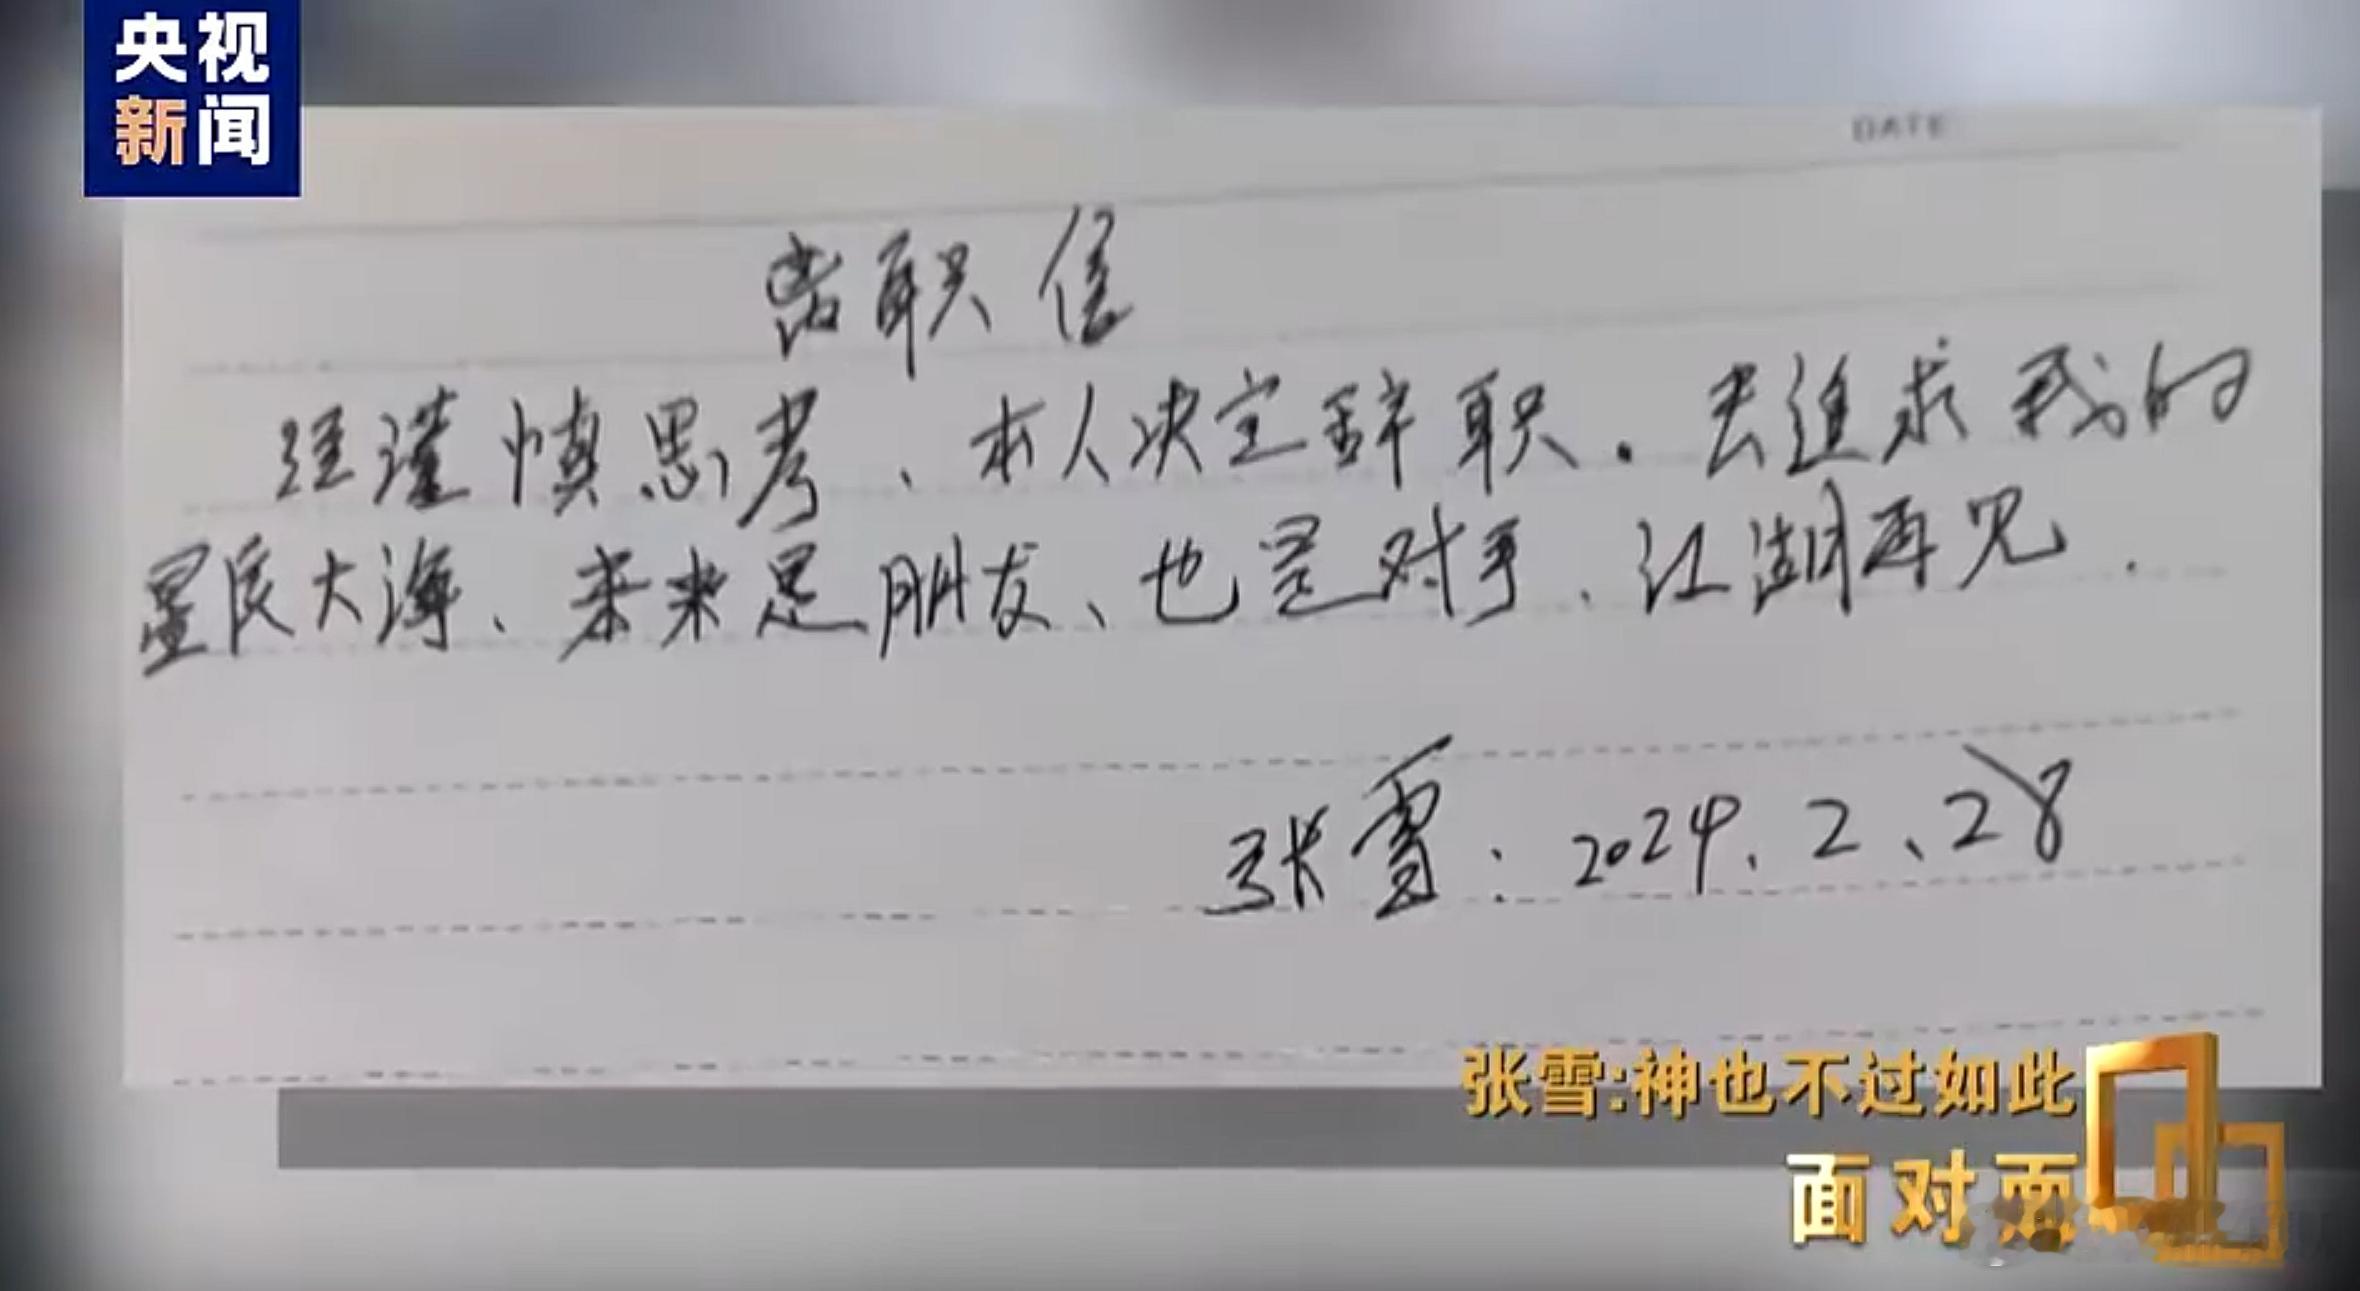 央视
新闻
DATE
离职信
经谨慎思考、本人决定辞职.去追求我的
星辰大海、未来是朋友、也是对手、江湖再见.
张雪:2024、2、28
张雪:神也不过如此
面对面